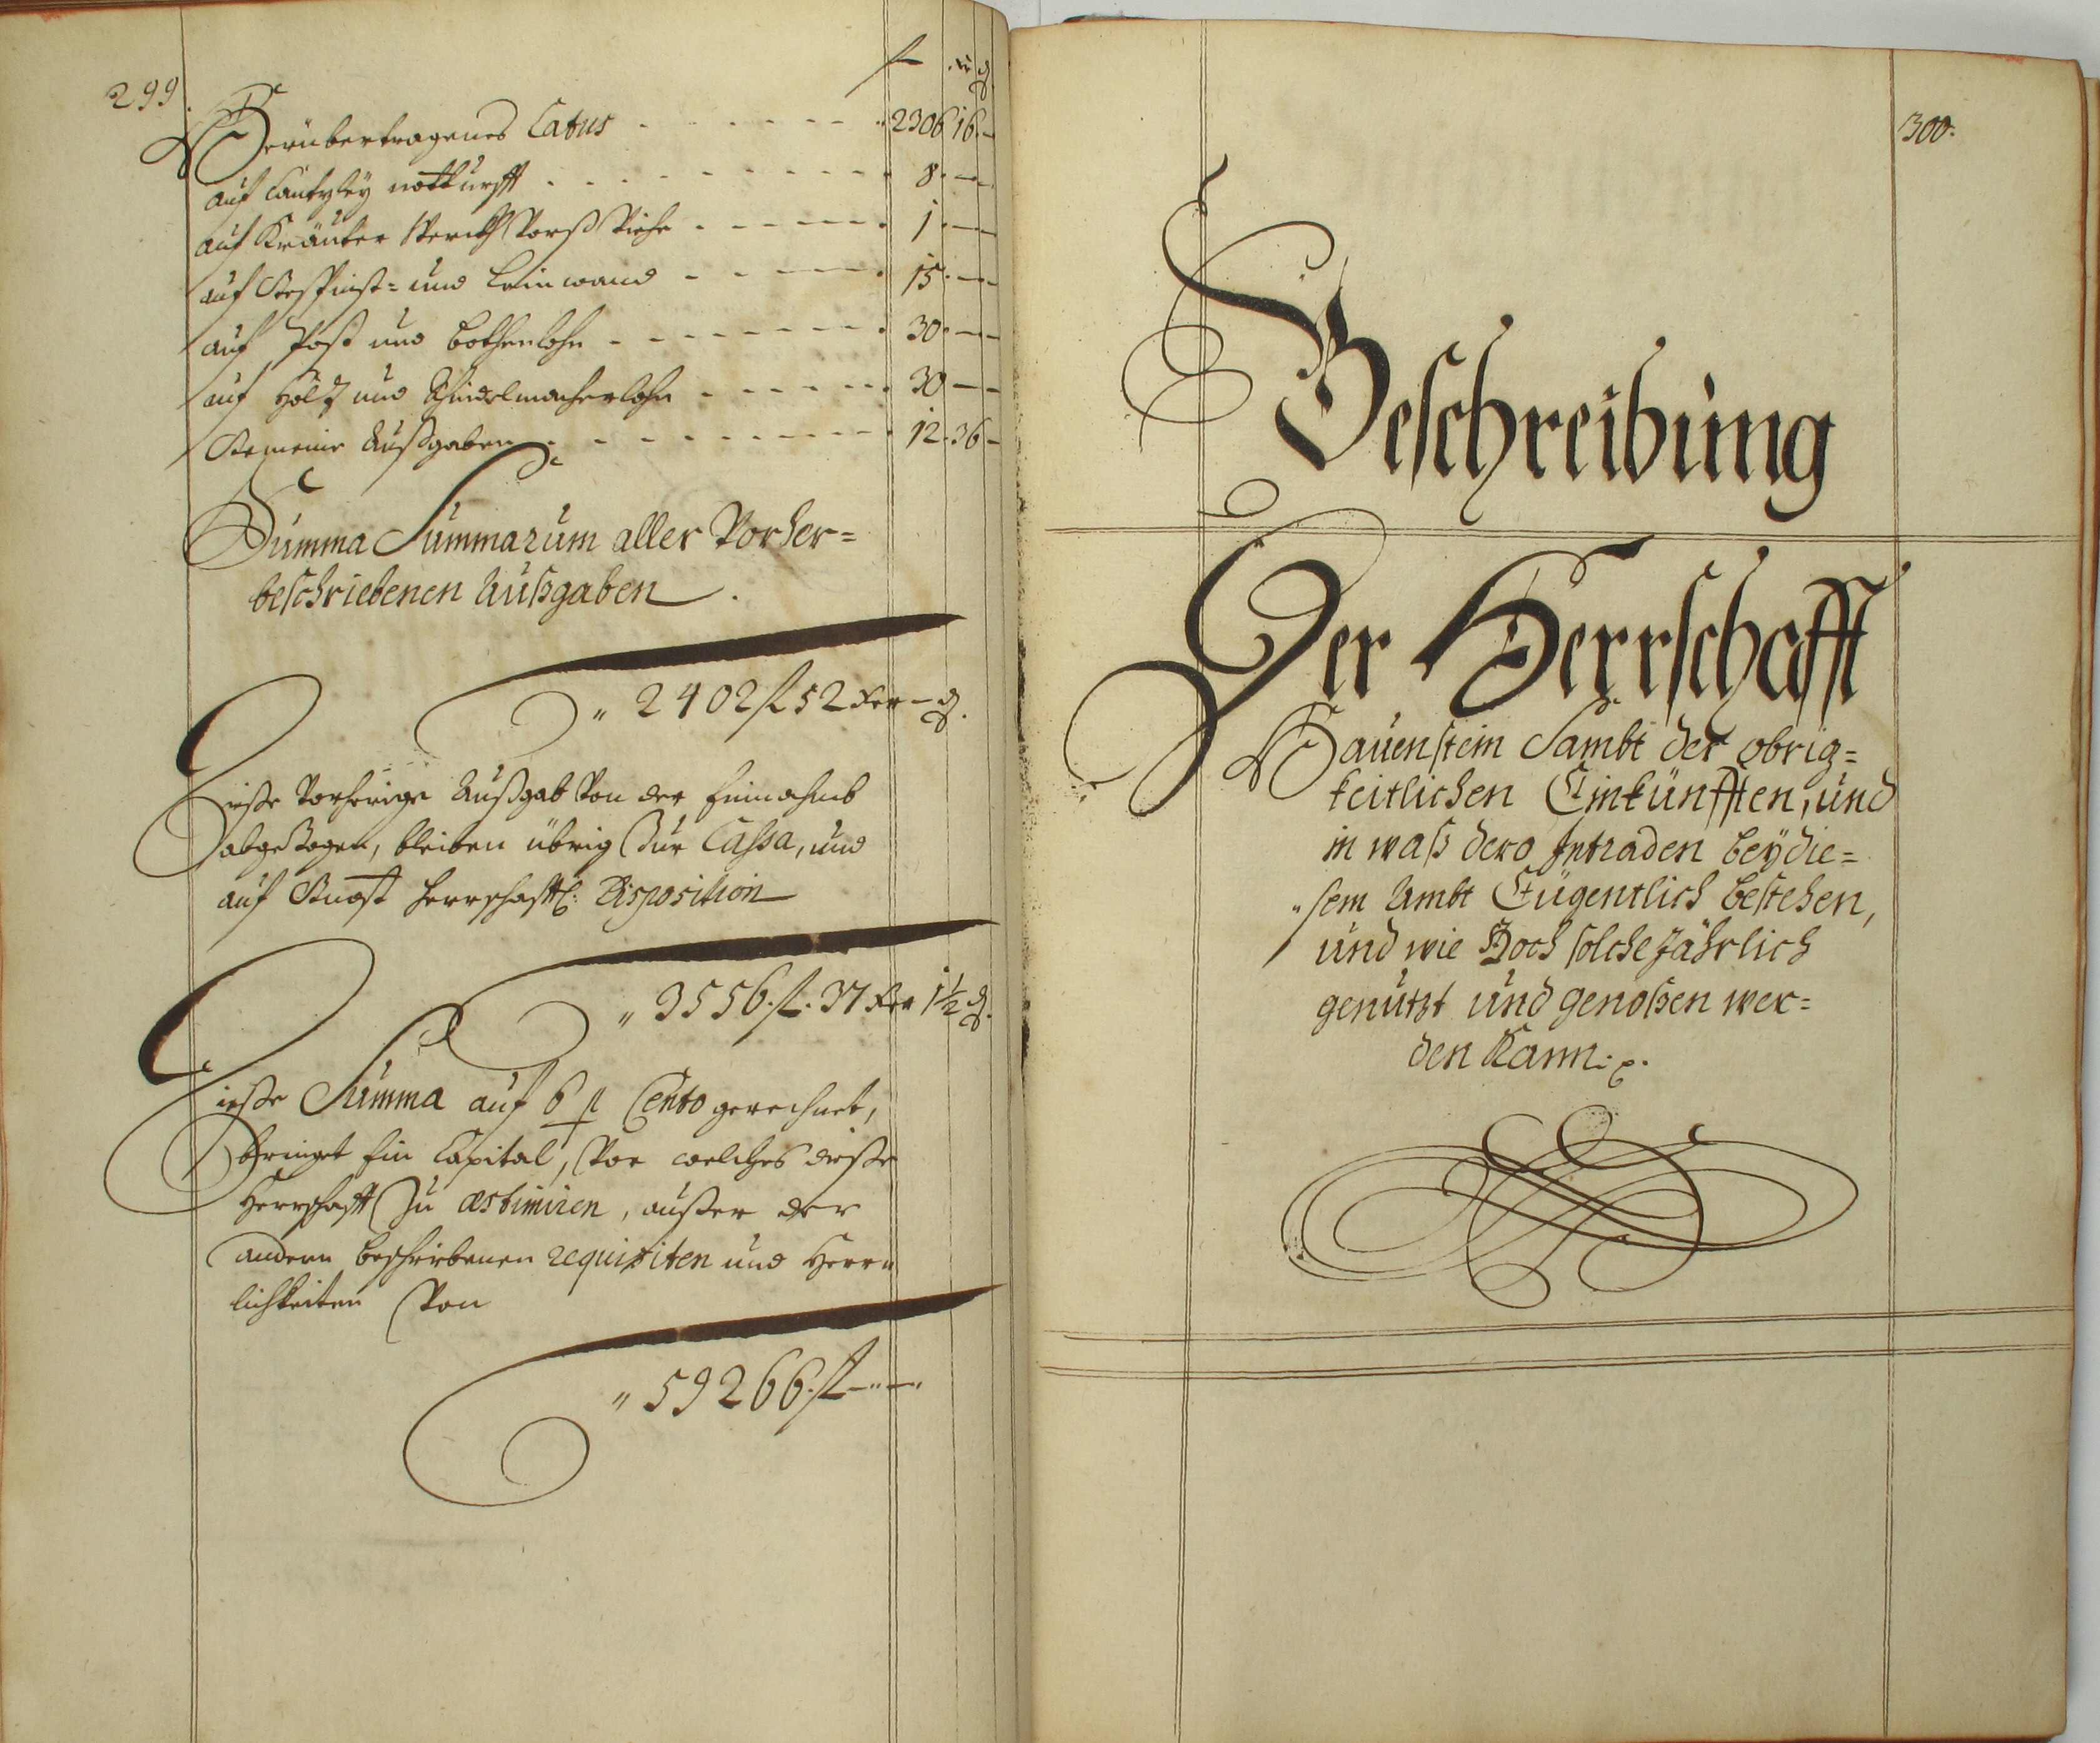 299.
fl xr ₰
Herübertragenes Latus 2306 16 -
auf Cantzley nottdurfft 8 -
auf Kräuter 1 -
auf Gespinst= und Leinwand 15 -
auf Post und bothenlohn 30 -
auf Holtz und Schindelmacherlohn 30 -
Gemeine Außgaben 12 36 -
Summa Summarum aller Vorher=
beschriebenen Außgaben.
„ 2402 fl 52 xer - ₰.
Dieße Vorherige Außgab Von der Einnahmb
abgezogen, bleiben übrig Zur Cassa, und
auf Gnäst herrschafftl: Disposition
„ 3556. fl. 37 xer 1½ ₰.
Dieße Summa auf 6 p Cento gerechnet,
bringet Ein Capital, Vor welches dieße
Herrschafft Zu æstimiren, außer der
andern beschriebenen requisiten und Herr=
lichkeiten Von
„ 59266. fl - -
300.
Beschreibung
Der Herrschafft
Hauenstein Sambt der obrig=
keitlichen Einkünfften, und
in waß dero Intraden bey die=
sem Ambt Eügentlich bestehen,
und wie Hoch solche Jährlich
genutzt und genoßen wer=
den Kann.